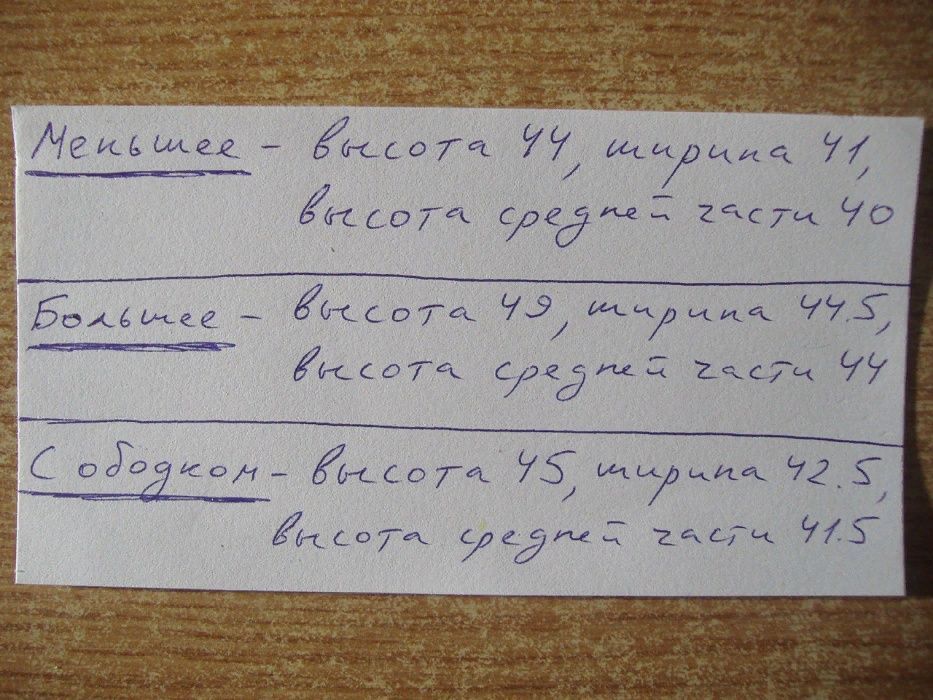 Меньшее - высота 44, ширина 41,
высота средней части 40
Большее - высота 49, ширина 44.5,
высота средней части 44
С ободком - высота 45, ширина 42.5,
высота средней части 41.5